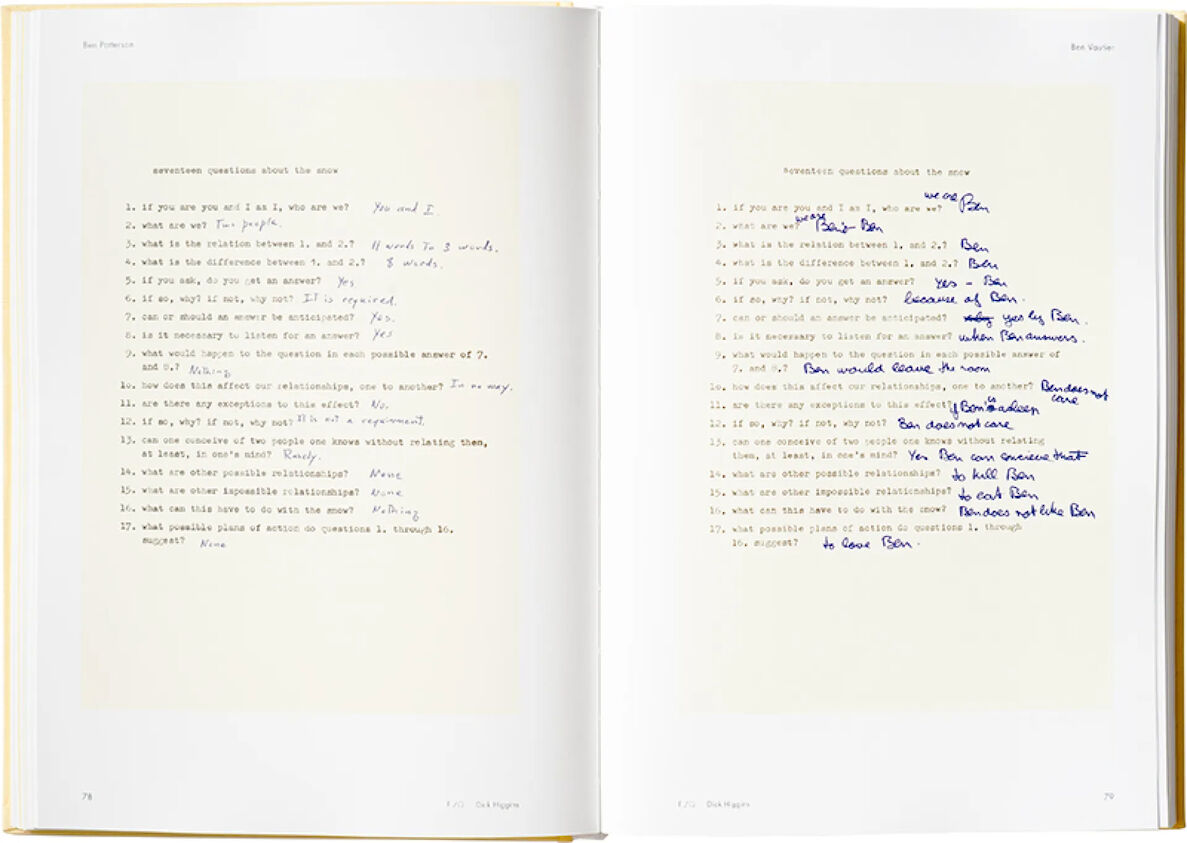 Ben Patterson
seventeen questions about the snow
1. if you are you and I am I, who are we? You and I
2. what are we? Two people.
3. what is the relation between 1. and 2.? 11 words to 3 words.
4. what is the difference between 1. and 2.? 8 words.
5. if you ask, do you get an answer? Yes
6. if so, why? if not, why not? It is required.
7. can or should an answer be anticipated? Yes.
8. is it necessary to listen for an answer? Yes
9. what would happen to the question in each possible answer of 7.
and 8.? Nothing
10. how does this affect our relationships, one to another? In no way.
11. are there any exceptions to this effect? No.
12. if so, why? if not, why not? It is not a requirement.
13. can one conceive of two people one knows without relating them,
at least, in one's mind? Rarely.
14. what are other possible relationships? None
15. what are other impossible relationships? None
16. what can this have to do with the snow? Nothing
17. what possible plans of action do questions 1. through 16.
suggest? None
78
E/Q Dick Higgins
Ben Vautier
seventeen questions about the snow
1. if you are you and I am I, who are we? we are Ben
2. what are we? we are Ben Ben
3. what is the relation between 1. and 2.? Ben
4. what is the difference between 1. and 2.? Ben
5. if you ask, do you get an answer? Yes - Ben
6. if so, why? if not, why not? because of Ben.
7. can or should an answer be anticipated? yes by Ben.
8. is it necessary to listen for an answer? when Ben answers.
9. what would happen to the question in each possible answer of
7. and 8.? Ben would leave the room
10. how does this affect our relationships, one to another? Ben does not care
11. are there any exceptions to this effect? if Ben is asleep
12. if so, why? if not, why not? Ben does not care
13. can one conceive of two people one knows without relating
them, at least, in one's mind? Yes Ben can concieve that
14. what are other possible relationships? to kill Ben
15. what are other impossible relationships? to eat Ben
16. what can this have to do with the snow? Ben does not like Ben
17. what possible plans of action do questions 1. through
16. suggest? to love Ben.
E/Q Dick Higgins
79